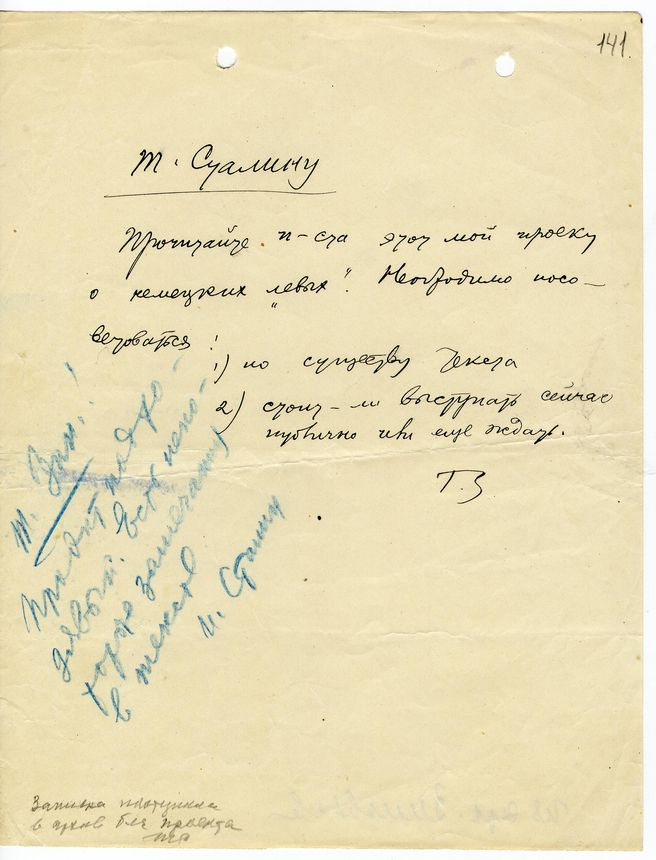 141.
т. Сталину
Прочитайте п-ста этот мой проект
о немецких „левых“. Необходимо посо-
ветоваться:
1) по существу текста
2) стоит-ли выступать сейчас
публично или еще ждать.
Г.З
т. Зин.!
Проект подхо-
дявый. Есть неко-
торые замечания
в тексте
И. Сталин
Записка поступила
в архив без проекта